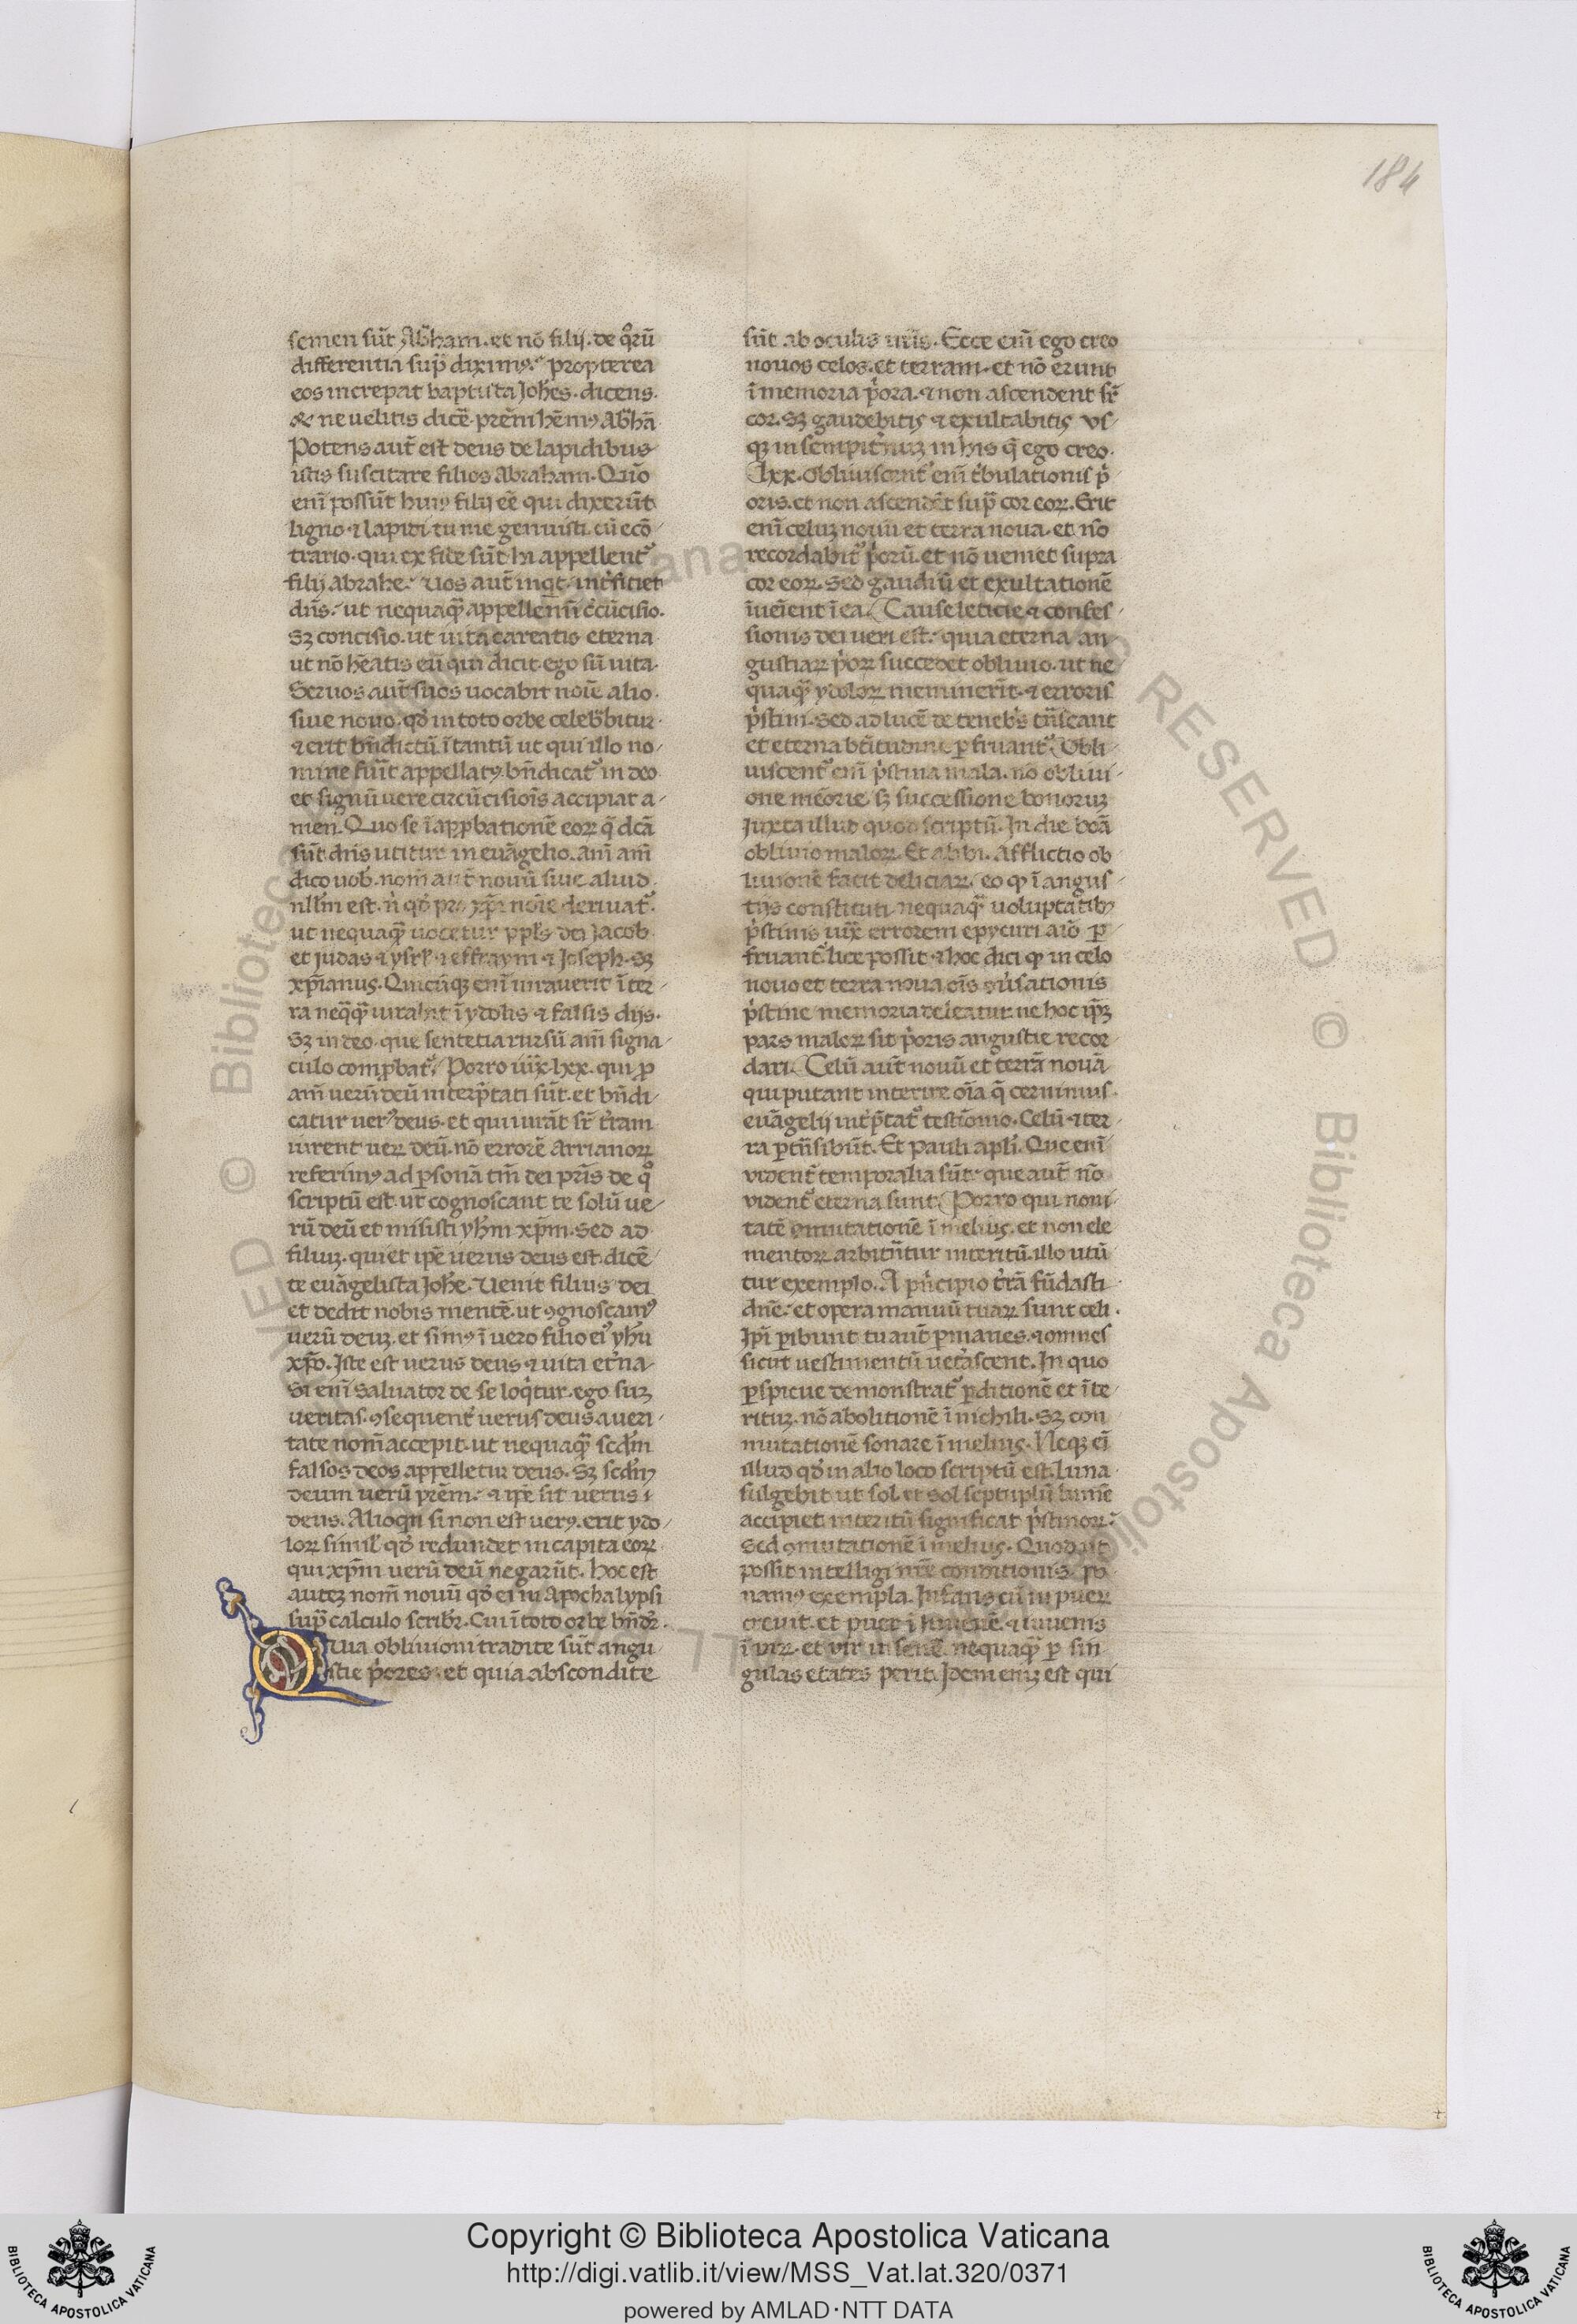 184
semen sūt Abh̄am. et nō filij. de qͦrū
differentia sup̄ diximꝰ. propterea
eos increpat baptista Joh̄es. dicens.
& ne velitis dicē. prēm hēmꝰ Abh̄ā
Potens aut̄ est deus de lapidibus
istis suscitare filios Abraham. Quō
enī possūt huiꝰ filij eē qui dixerūt
ligno ⁊ lapidi. tu me genuisti. cū ecō
trario. qui ex fide sūt. hi appellent᷑
filij Abrahe. Vos aut̄ inqͥt. int̓ficiet
dn̄s. ut nequaqᷓ appellem̄i c̓cūcisio.
Sꝫ concisio. ut uita careatis eterna
ut nō hēatis eū qui dicit. ego sū uita.
Seruos aut̄ suos uocabit noīe alio.
siue nouo. qd̓ in toto orbe celebͣbitur.
⁊ erit bn̄dictū. ī tantū ut qui illo no
mine fuīt appellatꝰ. bn̄dicat᷑ in deo
et signū uere circūcisiōis accipiat a
men. Quo se ī app̱bationē eoꝝ q̄ dcā
sūt. dn̄s utitur in euāgelio. am̄ am̄
dico uob̓. nom̄ aut̄ nouū siue aliud
nll̄m est. n̄ qd̓ pro xp̄i noīe deriuat᷑.
ut nequaqᷓ uocetur ppl̄s dei Jacob
et iudas ⁊ ysrl̓. ⁊ effraym ⁊ Joseph. Sꝫ
xp̄ianus. Quicūqꝫ enī iurauerit ī ter
ra neqͣqᷓ iurabit ī ydolis ⁊ falsis dijs.
Sꝫ in deo. que sentētia rursū am̄ signa
culo comp̱bat᷑. Porro iux̄. lxx. qui ꝓ
am̄ verū deū interp̄tati sūt. et bn̄di
catur verꝰ deus. et qui iurāt sr̄ t̓ram
iurent ueꝝ deū. nō errorē Arrianoꝝ
referimꝰ ad ꝑsonā tm̄ dei pr̄is de qͦ
scriptū est. ut cognoscant te solū ue
rū deū et misisti yh̄m xp̄m. Sed ad
filiuꝫ. qui et ip̄e uerus deus est. dicē
te euāgelista Joh̄e. Venit filius dei
et dedit nobis mentē. ut ꝯgnoscamꝰ
uerū deuꝫ. et simꝰ ī uero filio eiꝰ yh̄u
xp̄o. Iste est uerus deus ⁊ uita et̓na
Si enī Saluator de se loqͥtur. ego suꝫ
ueritas. ꝯsequent̓ uerus deus a ueri
tate nom̄ accepit. ut nequaqᷓ scd̄m
falsos deos appelletur deus. Sꝫ scd̄m
deum uerū prēm. ⁊ ip̄e sit uerus
deus. Alioqn̄ si non est uerꝰ. erit ydo
loꝝ simil̓. qd̓ redundet in capita eoꝝ
qui xp̄m uerū deū negarūt. Hoc est
autez nom̄ nouū qd̓ ei in Apochalypsi
sup̄ calculo scribr̄. Cui ī toto orbe bn̄dr̄.
Qua obliuioni tradite sūt angu
stie pͥores. et quia abscondite
sūt ab oculis n̄ris. Ecce enī ego creo
nouos celos. et terram. et nō erunt
ī memoria pͥora. ⁊ non ascendent sr̄
cor. Sꝫ gaudebitis ⁊ exultabitis vs
qꝫ in sempit̓nuꝫ in his q̄ ego creo.
lxx. Obliuiscent᷑ enī tͥbulationis pͥ
oris. et non ascendēt sup̄ cor eoꝝ. Erit
enī celuꝫ nouū et terra noua. et nō
recordabit᷑ pͥorū. et nō ueniet supra
cor eoꝝ. Sed gaudiū et exultationē
īueīent ī ea. Cause leticie ⁊ confes
sionis dei ueri est. quia eterna an
gustiaꝝ pͥoꝝ succedet obliuio. ut ne
quaqᷓ ydoloꝝ meminerīt. ⁊ erroris
pͥstini. Sed ad lucē de tenebͥs tn̄seant
et eterna btītudine ꝑfruant᷑. Obli
uiscent᷑ enī pͥstina mala. nō obliui
one mēorie. sꝫ successione bonoruꝫ
Juxta illud quod scriptū. In die bōa
obliuio maloꝝ. Et alibi. Afflictio ob
liuionē facit deliciaꝝ. eo ꝙ ī angus
tijs constituti. nequaqᷓ uoluptatibꝰ
pͥstinis iux̄ errorem epycuri aīo ꝑ
fruant᷑. lice possit. ⁊ hoc dici ꝙ in celo
nouo et terra noua oīs ꝯūsationis
pͥstine memoria deleatur. ne hoc ip̄ꝫ
pars maloꝝ sit pͥoris angustie recor
dari. Celū aut̄ nouū et terrā nouā
qui putant interire oīa q̄ cernimus.
euāgelij int̓p̄tat᷑ testīonio. Celū ⁊ ter
ra ꝑtn̄sibūt. Et Pauli apl̓i. Que enī
vident᷑ temporalia sūt. que aut̄ nō
vident᷑ eterna sunt. Porro qui noui
tatē ꝯmutationē ī melius. et non ele
mentoꝝ arbitn̄tur interitū. illo utū
tur exemplo. A pͥncipio t̓rā fūdasti
dnē. et opera manuū tuaꝝ sunt celi.
Ip̄i ꝑibunt tu aut̄ ꝑmanes. ⁊ omnes
sicut uestimentū uet̓ascent. In quo
ꝑspicue demonstrat᷑ ꝑditionē et īte
rituꝫ. nō abolitionē ī nichili. Sꝫ com
mutationē sonare ī melius. Neqꝫ eī
illud qd̓ in alio loco scriptū est. luna
fulgebit ut sol. et Sol septuplū lumē
accipiet. interitū significat pͥstinoꝝ.
Sed ꝯmutationē ī melius. Quod ut
possit intelligi nr̄e conditionis po
namꝰ exempla. Infans cū in pueꝝ
creuit. et puer ī iuuenē. ⁊ iuuenis
ī viꝝ. et vir in senē. nequaqᷓ ꝑ sin
gulas etates perit. Idem enꝫ est qui
Copyright © Biblioteca Apostolica Vaticana
http://digi.vatlib.it/view/MSS_Vat.lat.320/0371
powered by AMLAD·NTT DATA